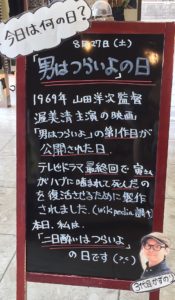 今日は何の日?
8月27日(土)
「男はつらいよ」の日
1969年 山田洋次監督
渥美清主演の映画
「男はつらいよ」の第1作目が
公開された日.
テレビドラマ最終回で 寅さん
がハブに噛まれて死んだの
を復活させるために製作
されました.(Wikipedia調べ)
本日、私は、
「二日酔いはつらいよ」
の日です
3代目かずのり